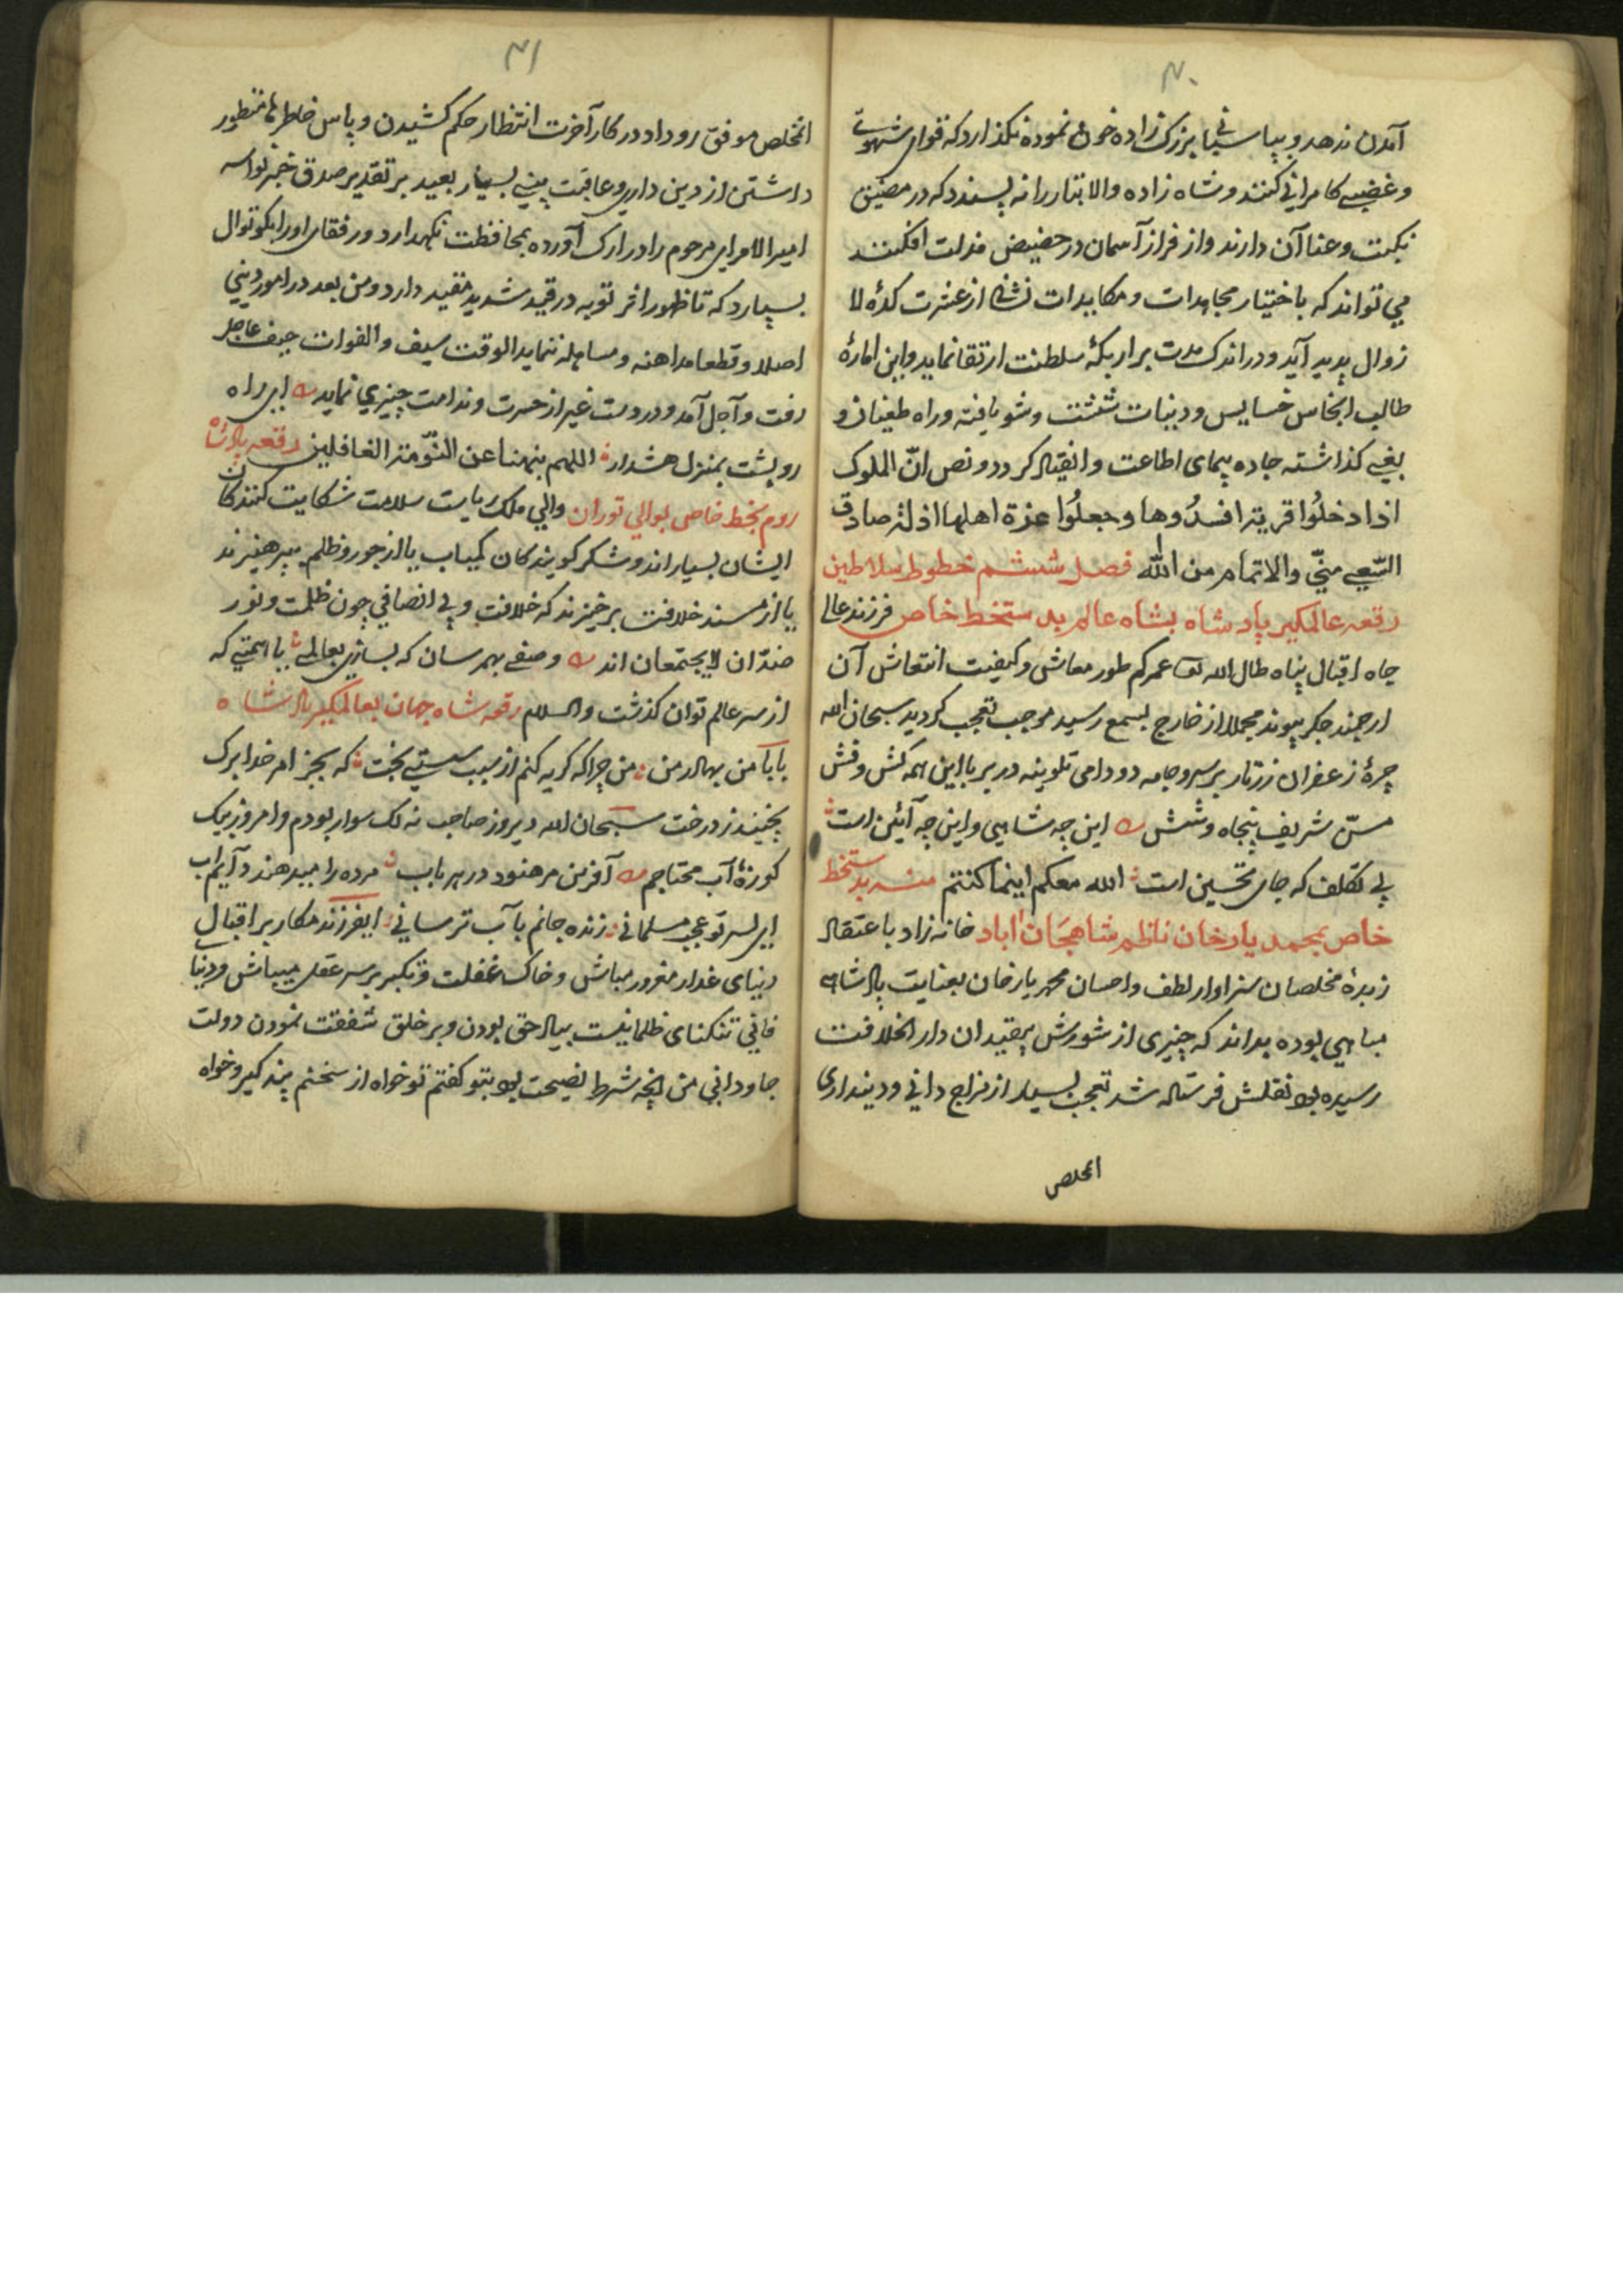 ۴۰
آمدن ندهد و بپاسبانی بزرگ زاده خرد نموده نکذارد که قوای شهوتے
و غضبے کامرانی کنند و شاه زاده والا تبار را نه پسندد که در مضیق
نکبت و عنا آن دارند و از فراز آسمان در حضیض مذلت افکنند
می تواند که باختیار مجاهدات و مکابدات نشانی از عشرت کدهٔ لا
زوال پدید آید و در اندک مدت بر اریکهٔ سلطنت ارتقا نماید و این امارهٔ
طالب انجاس خسایس و دنیات شست و شو یافته و راه طغیان و
بغی کذاشته جاده پیمای اطاعت و انقیاد کردد و نص انّ الملوک
اذا دخلُوا قریة افسدُوها و جعلُوا عزة اهلها اذلة صادق
السّعی منیّ والاتمام من الله فصل ششم خطوط سلاطین
رقعه عالمکیر پادشاه بشاه عالم بدستخط خاص فرزند عالی
جاه اقبال پناه طال الله تعا عمرکم طور معاش و کیفیت انتعاش آن
ارجمند جکر پیوند مجملا از خارج بسمع رسید موجب تعجب کردید سبحان الله
چیرهٔ زعفران زرتار بر سر و جامه دودامی تلوینه در بر با این همه کش و فش
سنّ شریف پنجاه و شش این چه شاهی و این چه آئین است
بی تکلف که جای تحسین است الله معکم اینما کنتم منه بدستخط
خاص بمحمد یار خان ناظم شاهجهان اباد خانه زاد باعتقاد
زبدهٔ مخلصان سزاوار لطف و احسان محمد یار خان بعنایت پادشاهی
مباهی بوده بداند که چیزی از شورش بیقیدان دار الخلافت
رسیده بود نقلش فرستاده شد تعجب بسیار از مزاج دانی و دینداری
المخلص
۴۱
المخلص موفق رو داد در کار آخرت انتظار حکم کشیدن و پاس خاطرها منظور
داشتن از دین داری و عاقبت بینی بسیار بعید بر تقدیر صدق خبر نواسه
امیر الامرای مرحوم را در ارک آورده بمحافظت نکهدارد و رفقای او را بکوتوال
بسپارد که تا ظهور اثر توبه در قید شدید مقید دارد و من بعد در امور دینی
اصلا و قطعا مداهنه و مساهله ننماید الوقت سیف و الفوات حیف عاجل
رفت و آجل آمد و در دست غیر از حسرت و ندامت چیزی نماید ای راه
رو پشت بمنزل هشدار اللهم نبهنا عن النّومة الغافلین رقعه پادشاه
روم بخط خاص بوالی توران والی ملک ریاست سلامت شکایت کنندکان
ایشان بسیار اند و شکر کویندکان کمیاب یا از جور و ظلم بپرهیزند
یا از مسند خلافت برخیزند که خلافت و بی انصافی چون ظلمت و نور
ضدّان لا یجتمعان اند وصفے بهم رسان که بسازی بعالمے یا همتی که
از سر عالم توان کذشت والسلام رقعه شاه جهان بعالمکیر پادشاه
بابا من بهادر من من چرا که کریه کنم از سبب سستی بخت که بجز امر خدا برک
نجنبد ز درخت سبحان الله دیروز صاحب نه لک سوار بودم و امروز بیک
کوزهٔ آب محتاجم آفرین مر هنود در هر باب مرده را میدهند دایم آب
ای پسر تو عجب مسلمانی زنده جانم بآب ترسانی ایفرزند مکار بر اقبال
دنیای غدار مغرور مباش و خاک غفلت و تکبر بر سر عقل مپاش و دنیا
فانی تنکنای ظلمانیست بیاد حق بودن و بر خلق شفقت نمودن دولت
جاودانی من انچه شرط نصیحت بود بتو کفتم تو خواه از سخنم پند کیر و خواه